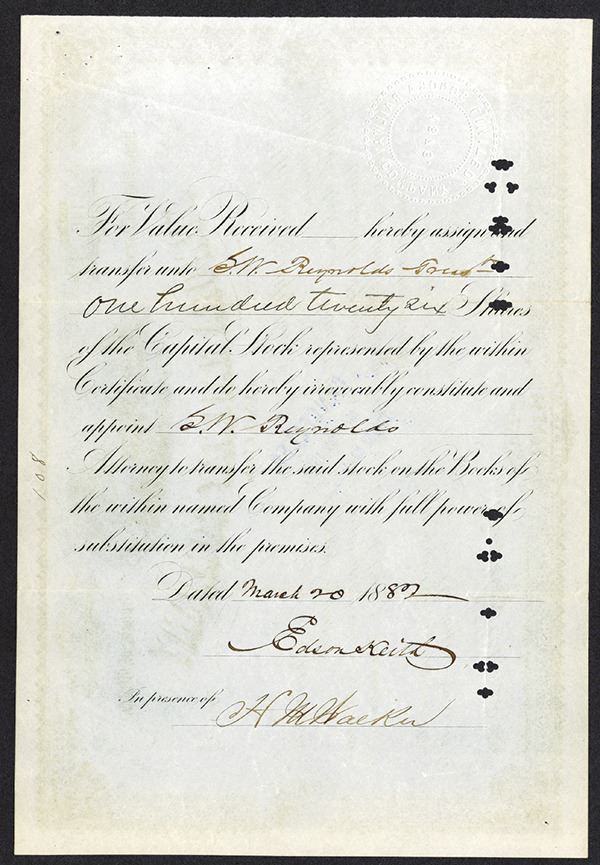 For Value Received hereby assign and
transfer unto G.W. Reynolds Trust
One hundred twenty six Shares
of the Capital Stock represented by the within
Certificate and do hereby irrevocably constitute and
appoint G.W. Reynolds
Attorney to transfer the said stock on the Books of
the within named Company with full power of
substitution in the premises.
Dated March 20 1882
Edson Keith
In presence of H M Walker
108